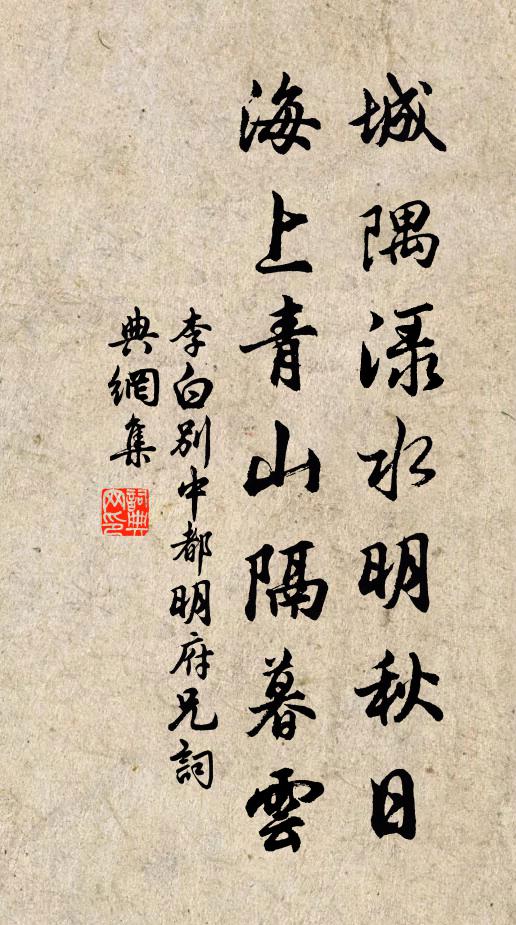 城隅渌水明秋日
海上青山隔暮雲
李白別中都明府兄詞
典網集
詞典網印